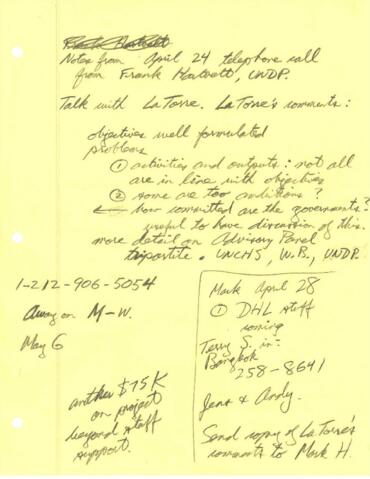 Notes from April 24 telephone call
from Frank Hartvelt, UNDP.
Talk with La Torre. La Torre's comments:
objectives well formulated
problems
① activities and outputs: not all
are in line with objectives
② some are too ambitious?
← how committed are the governments?
useful to have discussion of this.
more detail on Advisory Panel
tripartite. UNCHS, W.B., UNDP.
1-212-906-5054
Away on M-W.
May 6
another $75K
on project
beyond staff
support.
Mark April 28
① DHL stuff
coming
Terry S. in:
Bangkok
258-8641
Jens & Andy.
Send copy of La Torre's
comments to Mark H.